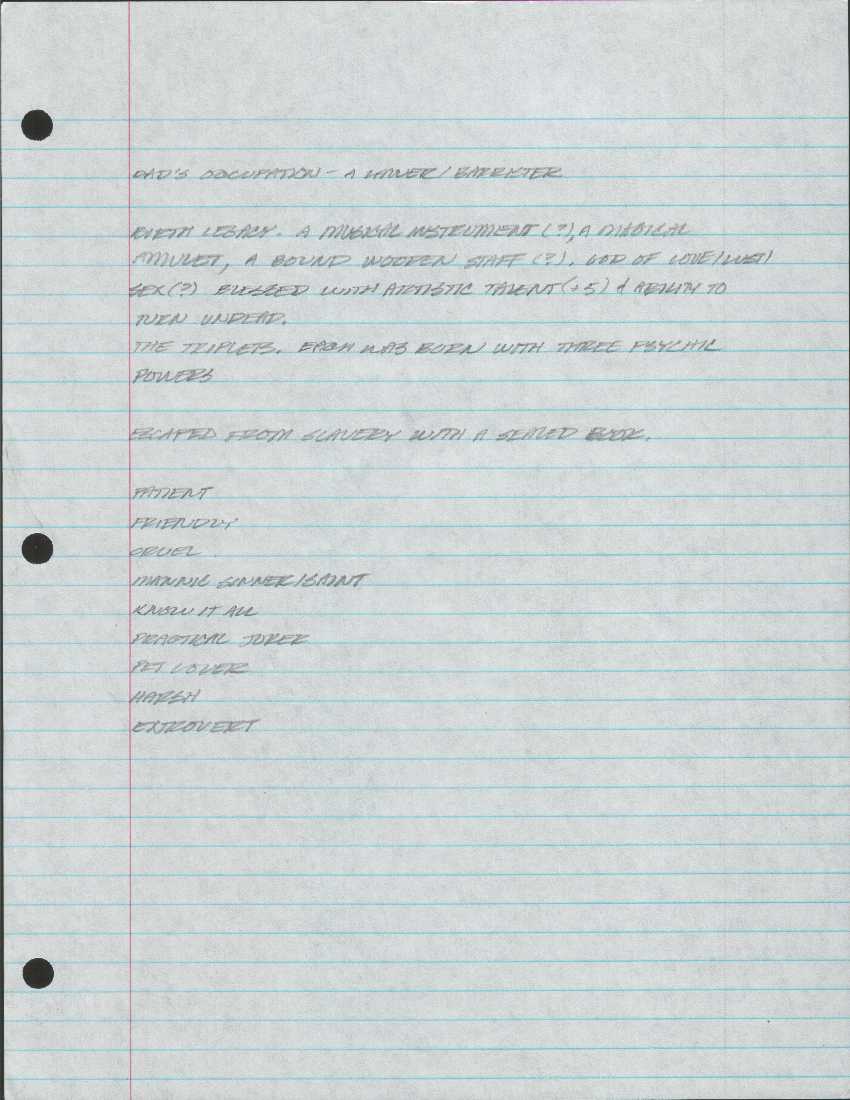 DAD'S OCCUPATION - A LAWER/BARRISTER
BIRTH LEGACY. A MUSICAL INSTRUMENT (?), A MAGICAL
AMULET, A BOUND WOODEN STAFF (?). GOD OF LOVE/LUST/
SEX(?) BLESSED WITH ARTISTIC TALENT (+5) & ABILITY TO
TURN UNDEAD.
THE TRIPLETS. EACH WAS BORN WITH THREE PSYCHIC
POWERS
ESCAPED FROM SLAVERY WITH A SEALED BOOK.
PATIENT
FRIENDLY
CRUEL
MANNIC SINNER/SAINT
KNOW IT ALL
PRACTICAL JOKER
PET LOVER
HARSH
EXTROVERT